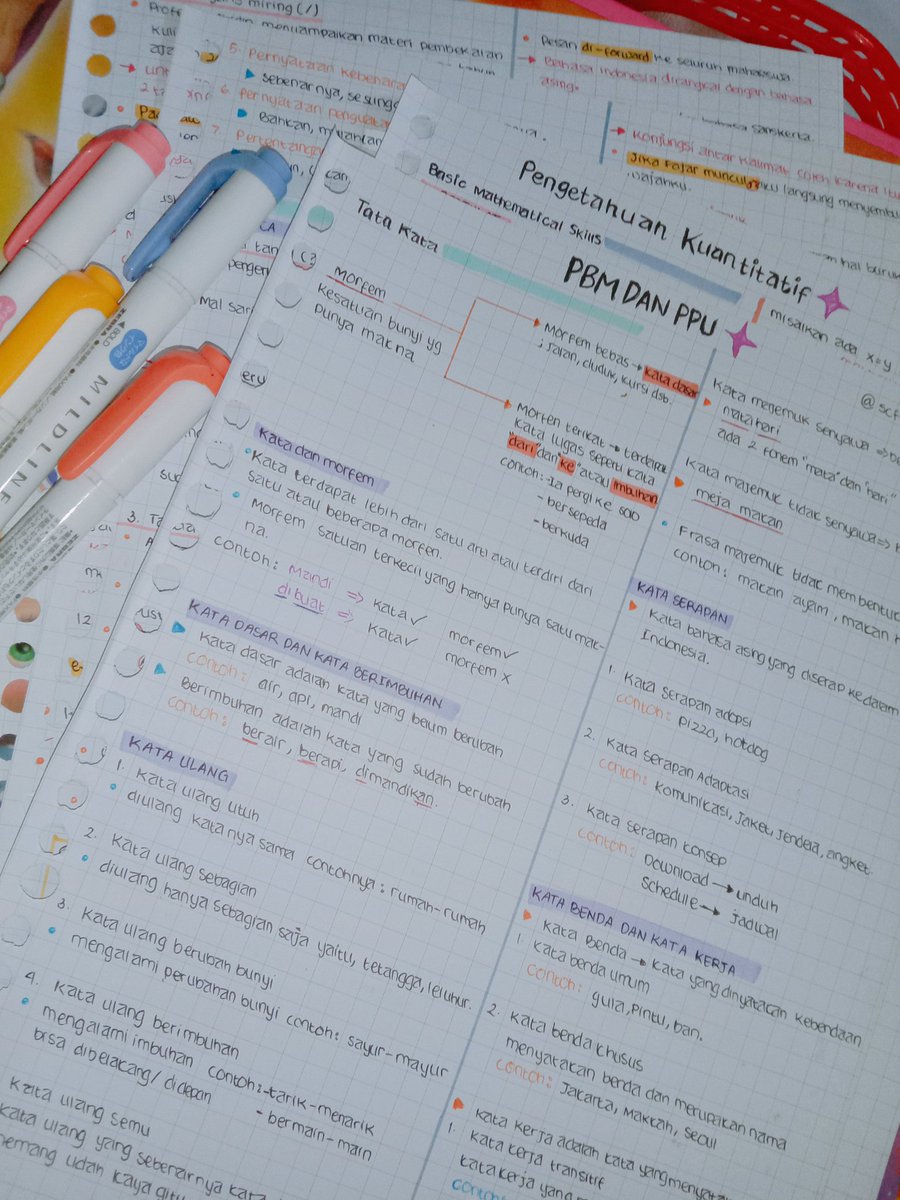 miring (/)
menyampaikan materi pembekalan
5. Pernyataan kebenara
sebenarnya, sesungg
6. pernyataan penguata
Bahkan, m
7. Pertentanga
Pesan di-forward ke seluruh mahasiswa
Bahasa indonesia dirangkai dengan bahasa
asing.
sanskerta.
Konjungsi antar kalimat
oleh karena itu
Jika Fajar muncul
ku langsung
Pengetahuan Kuantitatif
Basic Mathematical Skills
misalkan ada x=y
Tata Kata
PBM DAN PPU
morfem
kesatuan bunyi yg
punya makna
Morfem bebas → kata dasar
; jalan, duduk, kursi dsb.
Morfem terikat → terdapat
kata tugas seperti kata
"dari" dan "ke" atau imbuhan
contoh: - Ia pergi ke solo
- bersepeda
- berkuda
Kata dan morfem
• Kata terdapat lebih dari satu arti atau terdiri dari
satu atau beberapa morfem.
• Morfem satuan terkecil yang hanya punya satu mak-
na.
contoh: Mandi => kata ✓ morfem ✓
dibuat => kata ✓ morfem x
KATA DASAR DAN KATA BERIMBUHAN
Kata dasar adalah kata yang belum berubah
contoh: air, api, mandi
Berimbuhan adalah kata yang sudah berubah
contoh: berair, berapi, dimandikan.
KATA ULANG
1. Kata ulang utuh
• diulang katanya sama contohnya: rumah-rumah
2. Kata ulang sebagian
• diulang hanya sebagian saja yaitu, tetangga, leluhur.
3. Kata ulang berubah bunyi
• mengalami perubahan bunyi contoh: sayur-mayur
4. Kata ulang berimbuhan
• mengalami imbuhan contoh: -tarik-menarik
bisa dibelacang/didepan - bermain-main
Kata ulang semu
kata ulang yang sebenarnya kata
memang udah kaya gitu
Kata majemuk senyawa =>
matahari
ada 2 fonem "mata" dan "hari"
Kata majemuk tidak senyawa =>
meja makan
• Frasa majemuk tidak membentuk
contoh: makan ayam, makan
KATA SERAPAN
Kata bahasa asing yang diserap kedalam
Indonesia.
1. Kata serapan adopsi
contoh: pizza, hotdog
2. Kata serapan Adaptasi
contoh: komunikasi, jaket, jendela, angket.
3. Kata serapan konsep
contoh: Download → unduh
Schedule → jadwal
KATA BENDA DAN KATA KERJA
Kata Benda → kata yang dinyatakan kebendaan
1. kata benda umum
contoh: gula, pintu, ban.
2. kata benda khusus
menyatakan benda dan merupakan nama
contoh: Jakarta, Makkah, Seoul
Kata kerja adalah kata yang menyatak
1. kata kerja transitif
kata kerja yang
contoh:
ZEBRA
MILDLINE